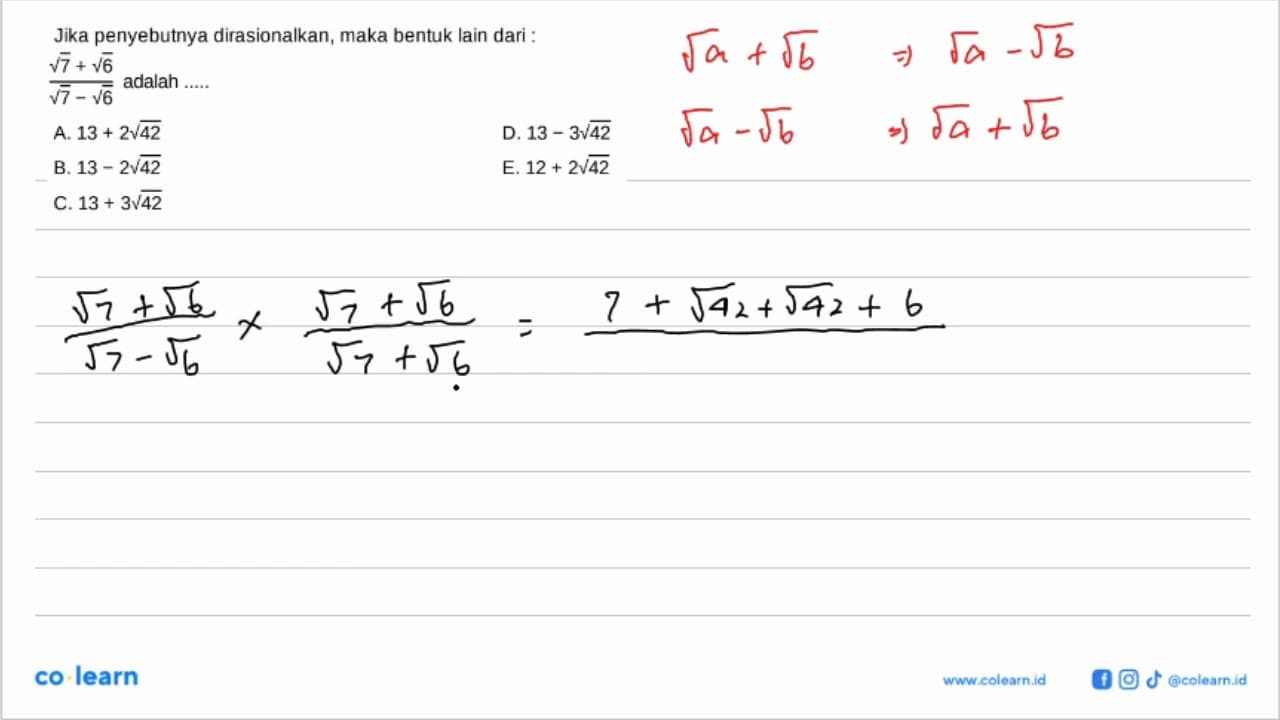 Jika penyebutnya dirasionalkan, maka bentuk lain dari :
√7 + √6
√7 − √6
adalah .....
A. 13 + 2√42
B. 13 − 2√42
C. 13 + 3√42
D. 13 − 3√42
E. 12 + 2√42
√a + √b ⇒ √a − √b
√a − √b ⇒ √a + √b
√7 + √6 × √7 + √6 = 7 + √42 + √42 + 6
√7 − √6 √7 + √6
co·learn
www.colearn.id
@colearn.id